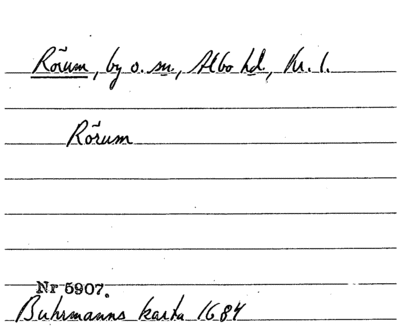 Rörum, by o. sn, Albo hd, Kr. l.
Rörum
Nr 5907.
Buhrmanns karta 1684